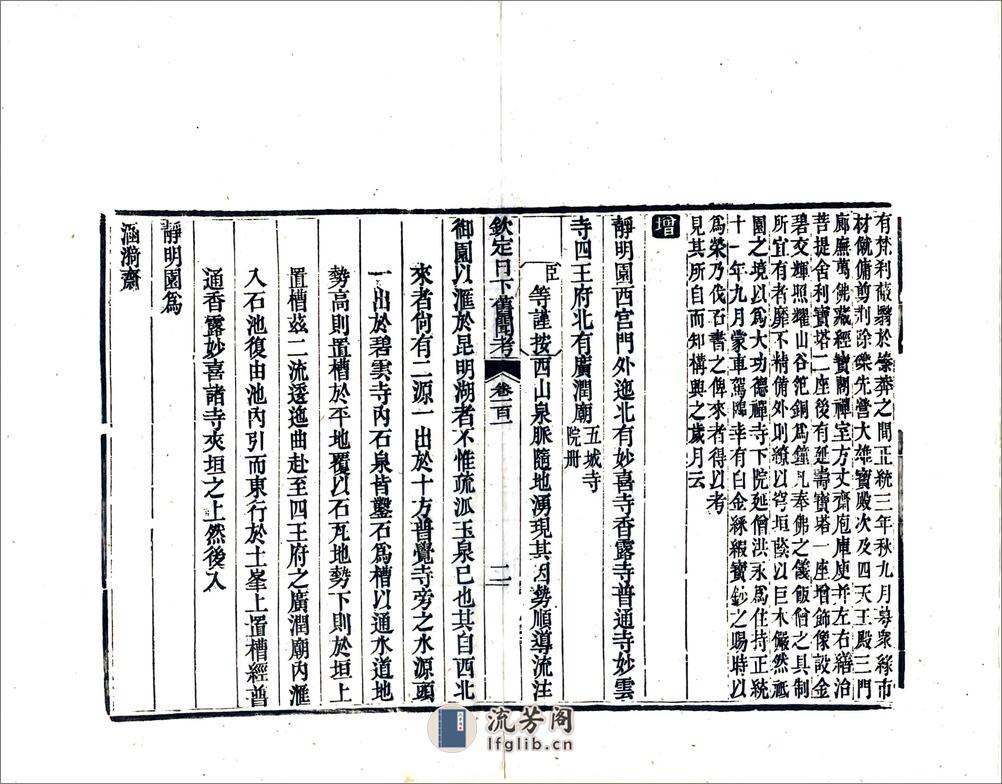 有梵刹蔽翳於榛莽之間正統三年秋九月募衆稼市
材僦傭剪荆除礫先營大雄寶殿次及四天王殿三門
廊廡萬佛藏經寶閣禪室方丈齋庖庫庾并左右繕治
菩提舍利寶塔二座後有延壽寶塔一座增飾像設金
碧交輝照耀山谷範銅爲鐘凡奉佛之儀飯僧之具制
所宜有者靡不精備外則繚以穹垣蔭以巨木儼然祇
園之境以爲大功德禪寺下院延僧洪永爲住持正統
十一年九月蒙車駕隨幸有白金綵緞寶鈔之賜時以
爲榮乃伐石書之俾來者得以考
見其所自而知構興之歲月云
增
靜明園西宮門外迤北有妙喜寺香露寺普通寺妙雲
寺四王府北有廣潤廟五城寺院册
臣等謹按西山泉脈隨地湧現其因勢順導流注
御園以滙於昆明湖者不惟疏派玉泉已也其自西北
欽定日下舊聞考 卷一百一 二
來者尚有二源一出於十方普覺寺旁之水源頭
一出於碧雲寺內石泉皆鑿石爲槽以通水道地
勢高則置槽於平地覆以石瓦地勢下則於垣上
置槽茲二流逶迤曲赴至四王府之廣潤廟內滙
入石池復由池內引而東行於土峯上置槽經普
通香露妙喜諸寺夾垣之上然後入
靜明園爲
涵漪齋
流芳阁
lfglib.cn